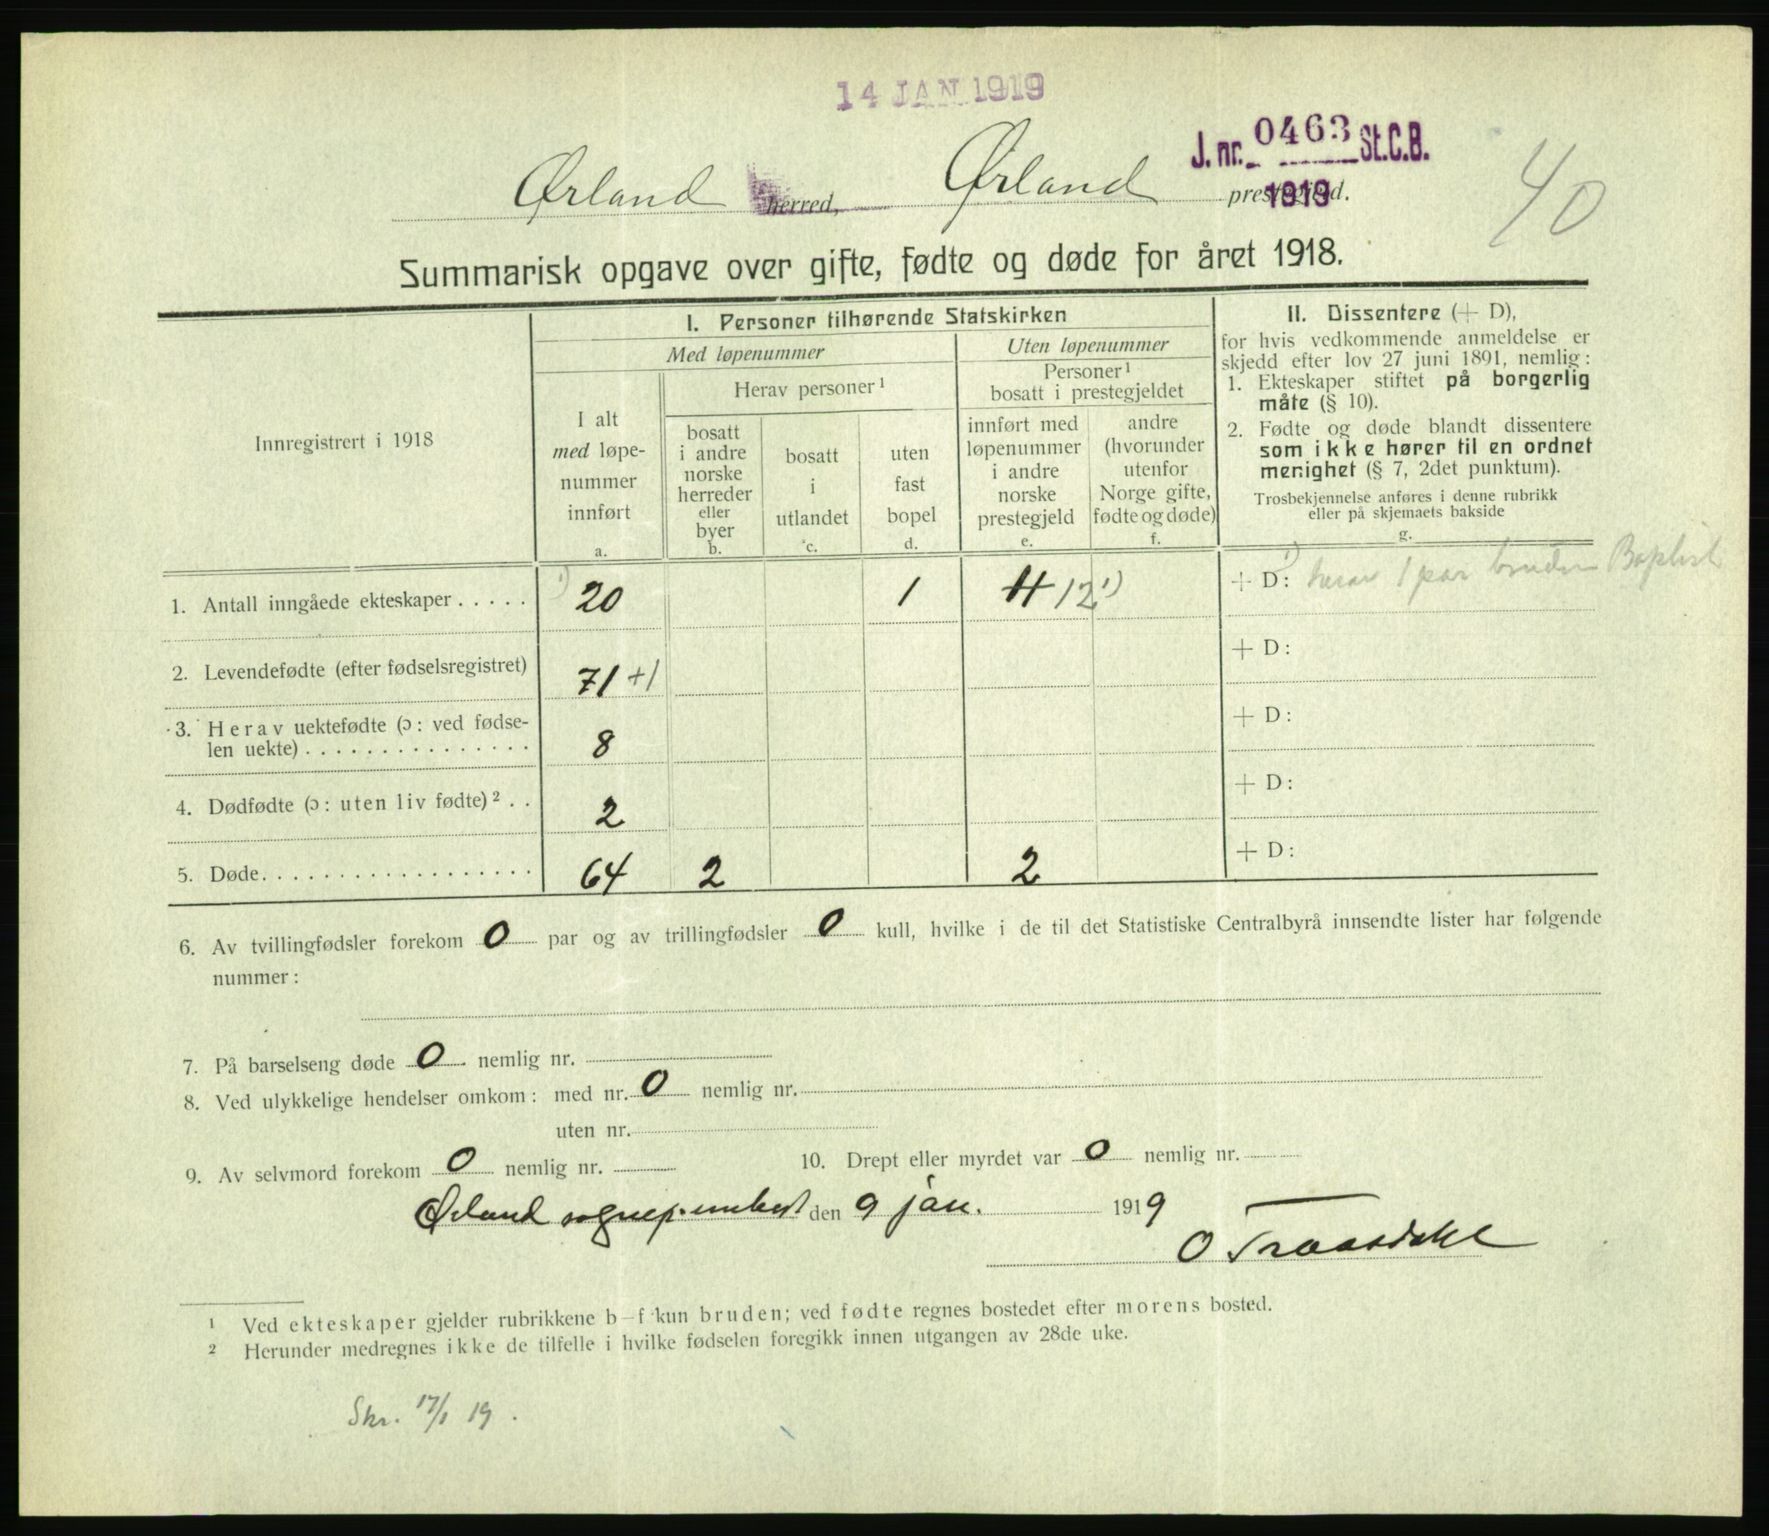 14 JAN 1919
J. nr. 0463 St.C.B.
1919
40
Ørland herred, Ørland prestegjeld.
Summarisk opgave over gifte, fødte og døde for året 1918.
Innregistrert i 1918
I. Personer tilhørende Statskirken
Med løpenummer
Uten løpenummer
I alt
med løpe-
nummer
innført
a.
Herav personer ¹
bosatt
i andre
norske
herreder
eller
byer
b.
bosatt
i
utlandet
c.
uten
fast
bopel
d.
Personer ¹
bosatt i prestegjeldet
innført med
løpenummer
i andre
norske
prestegjeld
e.
andre
(hvorunder
utenfor
Norge gifte,
fødte og døde)
f.
II. Dissentere (+ D),
for hvis vedkommende anmeldelse er
skjedd efter lov 27 juni 1891, nemlig:
1. Ekteskaper stiftet på borgerlig
måte (§ 10).
2. Fødte og døde blandt dissentere
som ikke hører til en ordnet
menighet (§ 7, 2det punktum).
Trosbekjennelse anføres i denne rubrikk
eller på skjemaets bakside
g.
1. Antall inngåede ekteskaper . . . . . ¹) 20 1 11 12 ¹) + D: ¹) herav 1 par bruden Baptist
2. Levendefødte (efter fødselsregistret) 71 +1 + D:
3. Herav uektefødte (ɔ: ved fødse-
len uekte) . . . . . . . . . . . . . . . 8 + D:
4. Dødfødte (ɔ: uten liv fødte) ² . . 2 + D:
5. Døde. . . . . . . . . . . . . . . . . . 64 2 2 + D:
6. Av tvillingfødsler forekom 0 par og av trillingfødsler 0 kull, hvilke i de til det Statistiske Centralbyrå innsendte lister har følgende
nummer:
7. På barselseng døde 0 nemlig nr.
8. Ved ulykkelige hendelser omkom: med nr. 0 nemlig nr.
uten nr.
9. Av selvmord forekom 0 nemlig nr. 10. Drept eller myrdet var 0 nemlig nr.
Ørland sognep.embed den 9 jan. 1919
O
¹ Ved ekteskaper gjelder rubrikkene b–f kun bruden; ved fødte regnes bostedet efter morens bosted.
² Herunder medregnes ikke de tilfelle i hvilke fødselen foregikk innen utgangen av 28de uke.
Skr. 17/1 19.